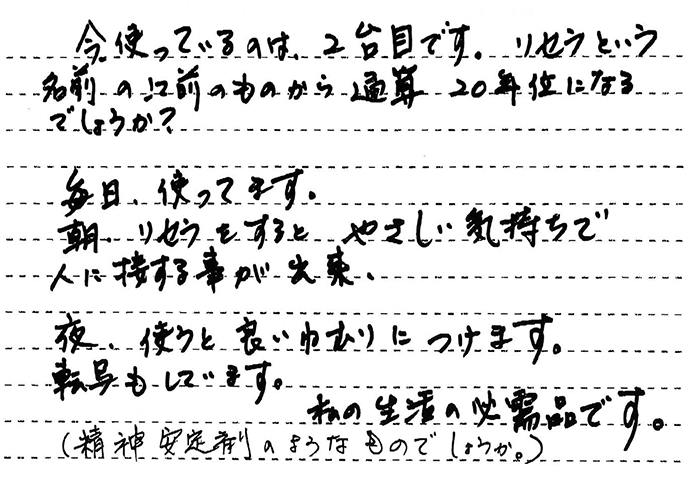 今、使っているのは、2台目です。リセラという
名前の以前のものから通算20年位になる
でしょうか？
毎日、使ってます。
朝、リセラをするとやさしい気持ちで
人に接する事が出来、
夜、使うと良いねむりにつけます。
転写もしています。
私の生活の必需品です。
(精神安定剤のようなものでしょうか。)